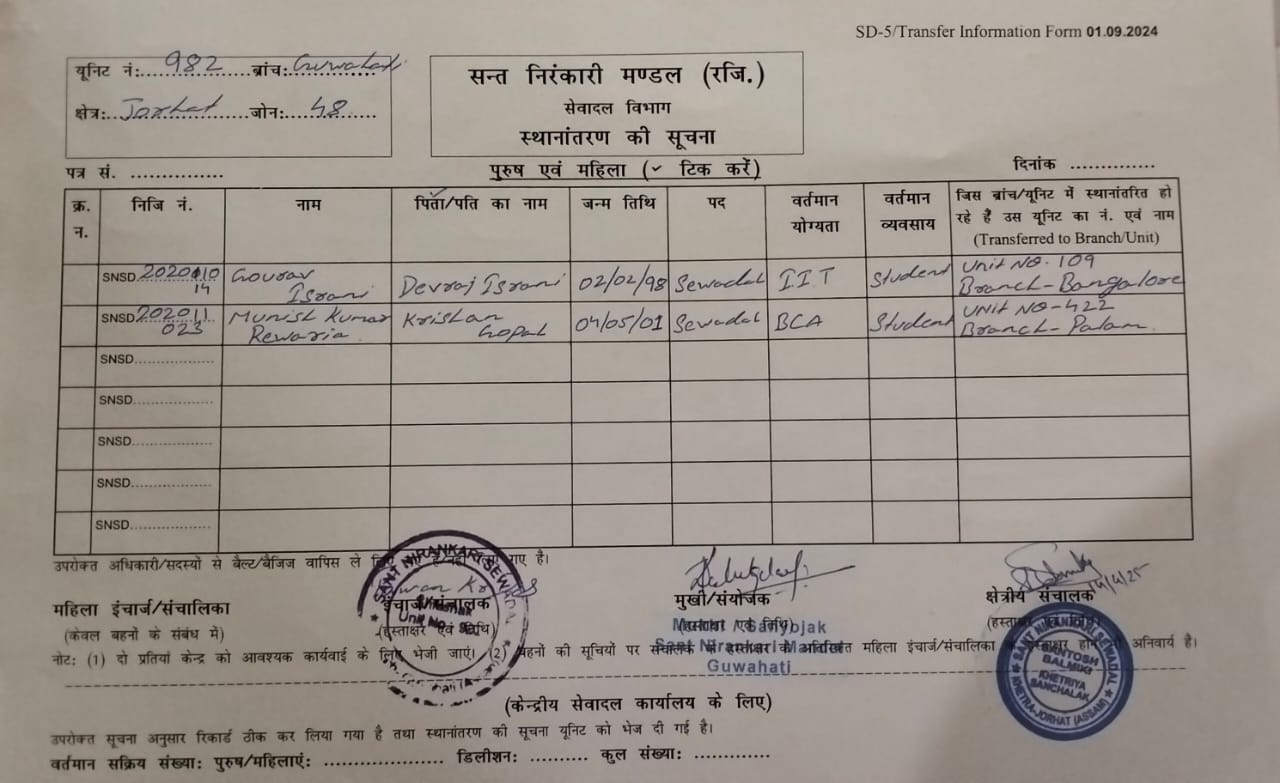 SD-5/Transfer Information Form 01.09.2024
यूनिट नं:....982....ब्रांच: Guwahati
क्षेत्र:...Jorhat......जोन:...48......
सन्त निरंकारी मण्डल (रजि.)
सेवादल विभाग
स्थानांतरण की सूचना
पत्र सं. ............... पुरुष एवं महिला (✓ टिक करें) दिनांक ..............
क्र. न. निजि नं. नाम पिता/पति का नाम जन्म तिथि पद वर्तमान योग्यता वर्तमान व्यवसाय जिस ब्रांच/यूनिट में स्थानांतरित हो रहे हैं उस यूनिट का नं. एवं नाम (Transferred to Branch/Unit)
SNSD 20201014 Gourav Israni Devraj Israni 02/02/98 Sewadal IIT Student Unit NO. 109 Branch-Bangalore
SNSD 202011023 Munish Kumar Rewaria Krishan Gopal 04/05/01 Sewadal BCA Student UNIT NO-422 Branch-Palam
SNSD...............
SNSD...............
SNSD...............
SNSD...............
SNSD...............
उपरोक्त अधिकारी/सदस्यों से बैल्ट/बैजिज वापिस ले गए है।
महिला इंचार्ज/संचालिका
(केवल बहनों के संबंध में)
इंचार्ज/संचालक
(हस्ताक्षर एवं तिथि)
SANT NIRANKARI SEWADAL
Unit No.
मुखी/संयोजक
(हस्ताक्षर एवं तिथि)
Sant Nirankari Mandal
Guwahati
14/4/25
क्षेत्रीय संचालक
SANT NIRANKARI SEWADAL
SANTOSH
BALMIKI
KHETRIYA
SANCHALAK
KHETRA-JORHAT (ASSAM)
नोट: (1) दो प्रतियां केन्द्र को आवश्यक कार्यवाई के लिए भेजी जाएं। (2) बहनों की सूचियों पर संचालक के हस्ताक्षर के अतिरिक्त महिला इंचार्ज/संचालिका के हस्ताक्षर होने भी अनिवार्य है।
(केन्द्रीय सेवादल कार्यालय के लिए)
उपरोक्त सूचना अनुसार रिकार्ड ठीक कर लिया गया है तथा स्थानांतरण की सूचना यूनिट को भेज दी गई है।
वर्तमान सक्रिय संख्या: पुरुष/महिलाएं: .................... डिलीशन: .......... कुल संख्या: .............